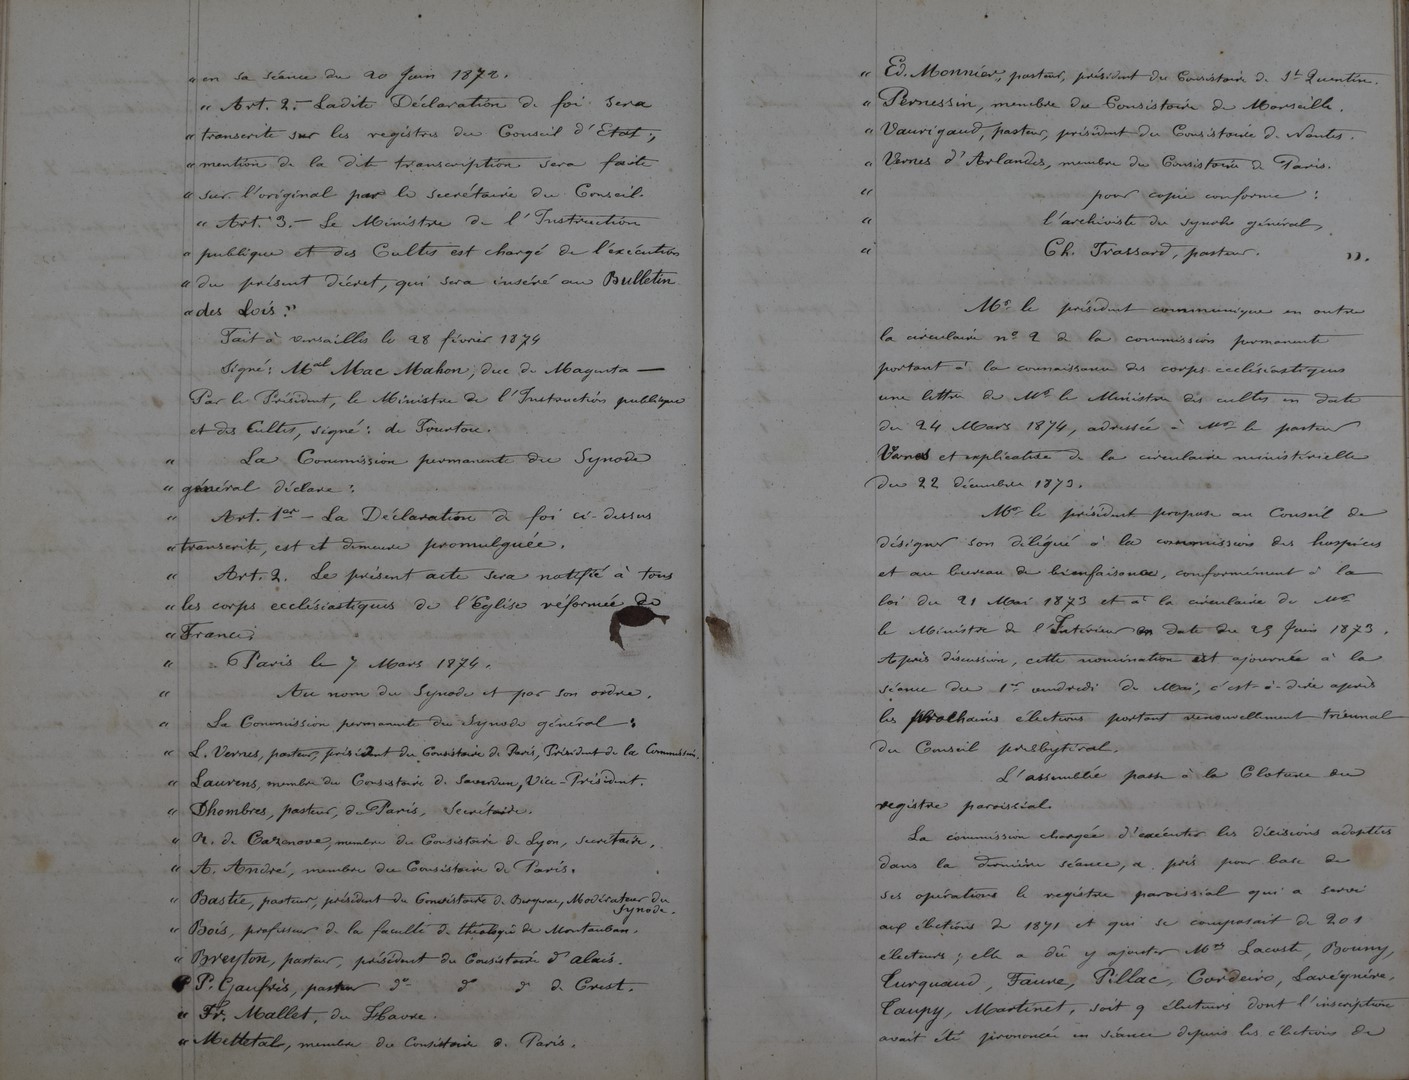 " en sa séance du 20 Juin 1872.
" " Art. 2. - Ladite Déclaration de foi sera
" transcrite sur les registres du Conseil d'Etat ;
" mention de la dite transcription sera faite
" sur l'original par le secrétaire du Conseil.
" " Art. 3. - Le Ministre de l'Instruction
" publique et des Cultes est chargé de l'exécution
" du présent décret, qui sera inséré au Bulletin
" des Lois."
Fait à Versailles le 28 février 1874
Signé : Mal Mac Mahon, duc de Magenta —
Par le Président, le Ministre de l'Instruction publique
et des Cultes, signé : de Fourtou.
" La Commission permanente du Synode
" général déclare :
" Art. 1er - La Déclaration de foi ci-dessus
" transcrite, est et demeure promulguée.
" Art. 2. Le présent acte sera notifié à tous
" les corps ecclésiastiques de l'Eglise réformée de
" France.
" Paris le 7 Mars 1874.
" Au nom du Synode et par son ordre,
" La Commission permanente du Synode général :
" L. Vernes, pasteur, président du Consistoire de Paris, Président de la Commission.
" Laurens, membre du Consistoire de Saverdun, Vice-Président.
" Dhombres, pasteur, de Paris, Secrétaire.
" R. de Cazenove, membre du Consistoire de Lyon, secrétaire.
" A. André, membre du Consistoire de Paris.
" Bastie, pasteur, président du Consistoire de Bergerac, Modérateur du
Synode.
" Bois, professeur de la faculté de théologie de Montauban.
" Breyton, pasteur, président du Consistoire d'alais.
" P. Gaufrès, pasteur do do do de Crest.
" Fr. Mallet, du Havre.
" Mettetal, membre du Consistoire de Paris.
" Ed. Monnier, pasteur, président du Consistoire de St Quentin.
" Pernessin, membre du Consistoire de Marseille.
" Vaurigaud, pasteur, président du Consistoire de Nantes.
" Vernes d'Arlandes, membre du Consistoire de Paris.
" pour copie conforme :
" l'archiviste du synode général,
" Ch. Frossard, pasteur. ".
Mr le président communique en outre
la circulaire no 2 de la commission permanente
portant à la connaissance des corps ecclésiastiques
une lettre de Mr le Ministre des cultes en date
du 24 Mars 1874, adressée à Mr le pasteur
Vernes et explicative de la circulaire ministérielle
du 22 décembre 1873.
Mr le président propose au Conseil de
désigner son délégué à la commission des hospices
et au bureau de bienfaisance, conformément à la
loi du 21 Mai 1873 et à la circulaire de Mr
le Ministre de l'Intérieur en date du 25 Juin 1873.
Après discussion, cette nomination est ajournée à la
séance du 1er vendredi de Mai, c'est-à-dire après
les prochaines élections portant renouvellement triennal
du Conseil presbytéral.
L'assemblée passe à la Cloture du
registre paroissial.
La commission chargée d'exécuter les décisions adoptées
dans la dernière séance, a pris pour base de
ses opérations le registre paroissial qui a servi
aux élections de 1871 et qui se composait de 201
électeurs ; elle a dû y ajouter Mrs Lacoste, Bouny,
Turquand, Faure, Pillac, Cordeiro, Lareynière,
Taupy, Martinet, soit 9 électeurs dont l'inscription
avait été prononcée en séance depuis les élections de